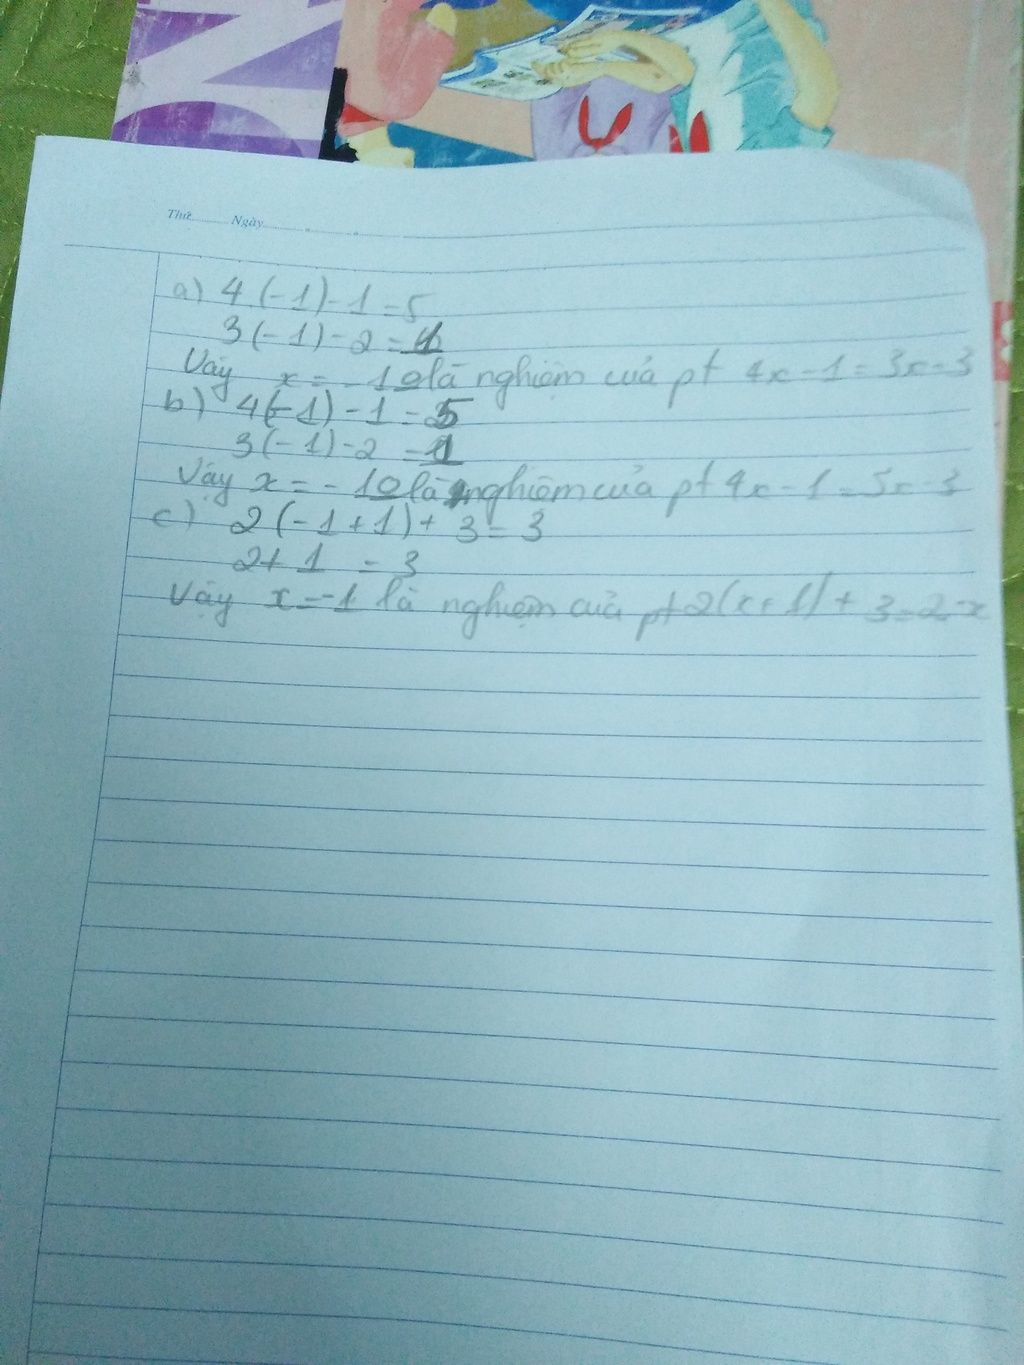 Thứ Ngày
a) 4(-1)-1=5
3(-1)-2=
Vậy x=-1 là nghiệm của pt 4x-1=3x-3
b) 4(-1)-1=
3(-1)-2=
Vậy x=- là nghiệm của pt 4x-1=3x-3
c) 2(-1+1)+3=3
2+1=3
Vậy x=-1 là nghiệm của pt 2(x+1)+3=2-x